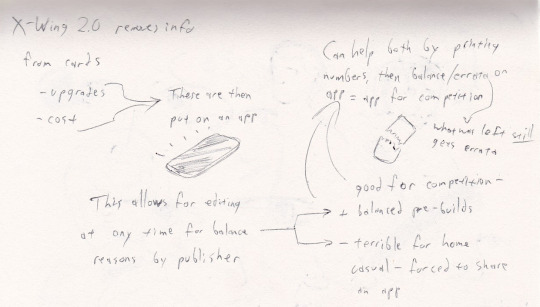 X-Wing 2.0 removes info
from cards
- upgrades
- cost
These are then
put on an app
This allows for editing
at any time for balance
reasons by publisher
Can help both by printing
numbers, then balance/errata on
app = app for competition
what was left still
gets errata
good for competition -
+ balanced pre-builds
- terrible for home
casual - forced to share
an app